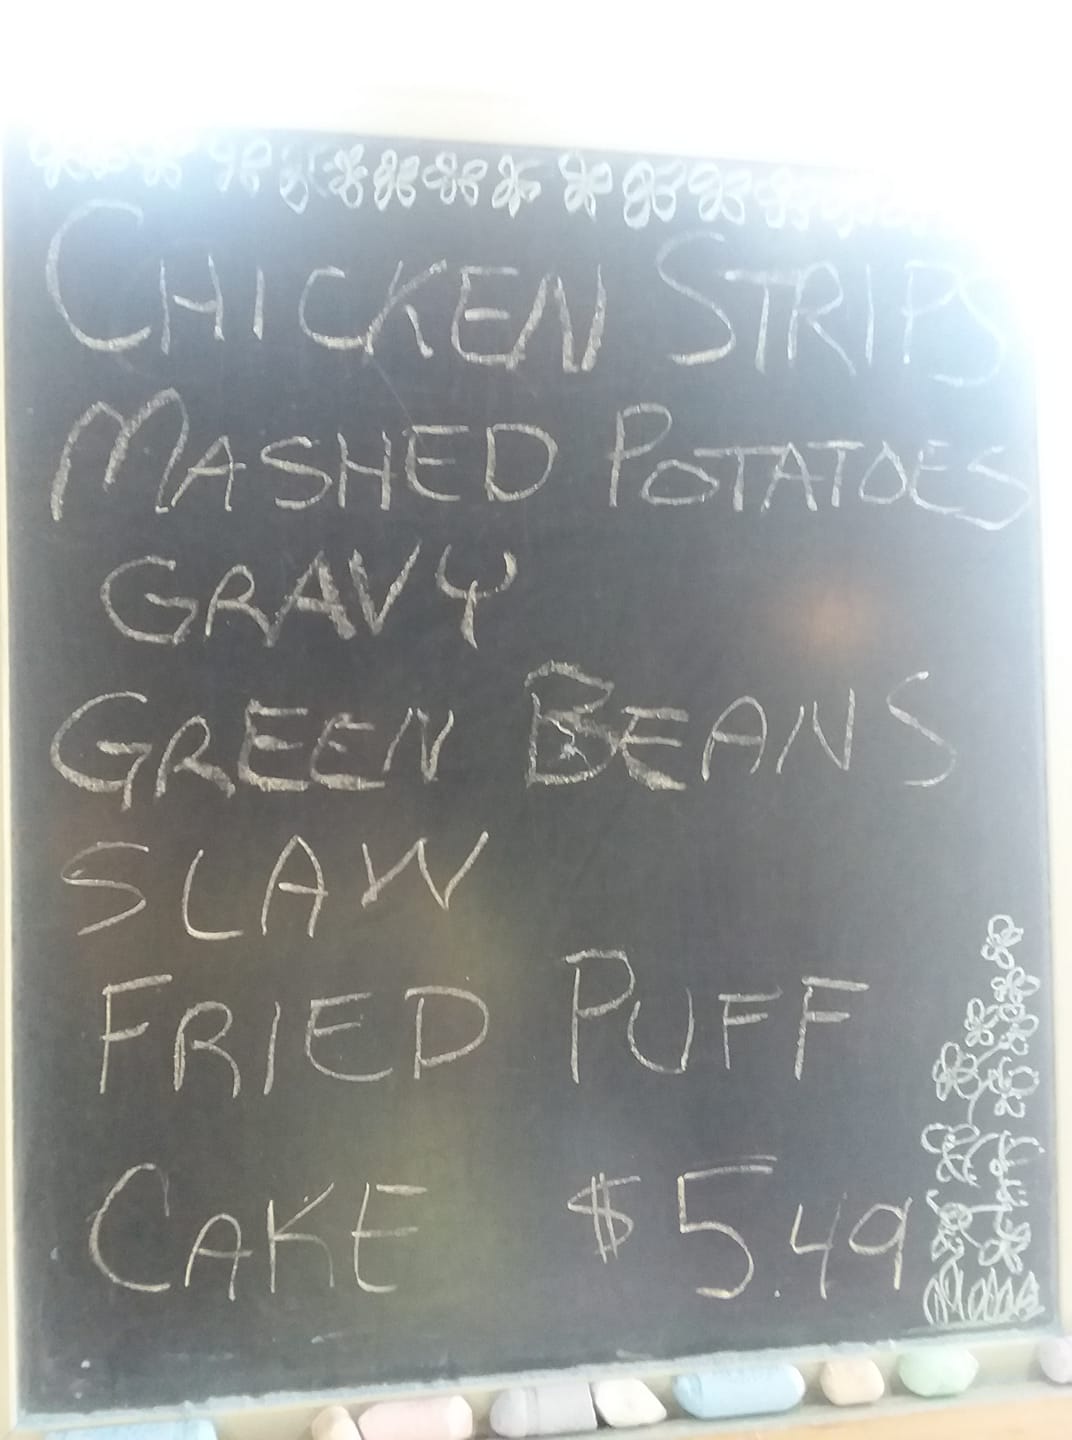 CHICKEN STRIPS
MASHED POTATOES
GRAVY
GREEN BEANS
SLAW
FRIED PUFF
CAKE $5.49